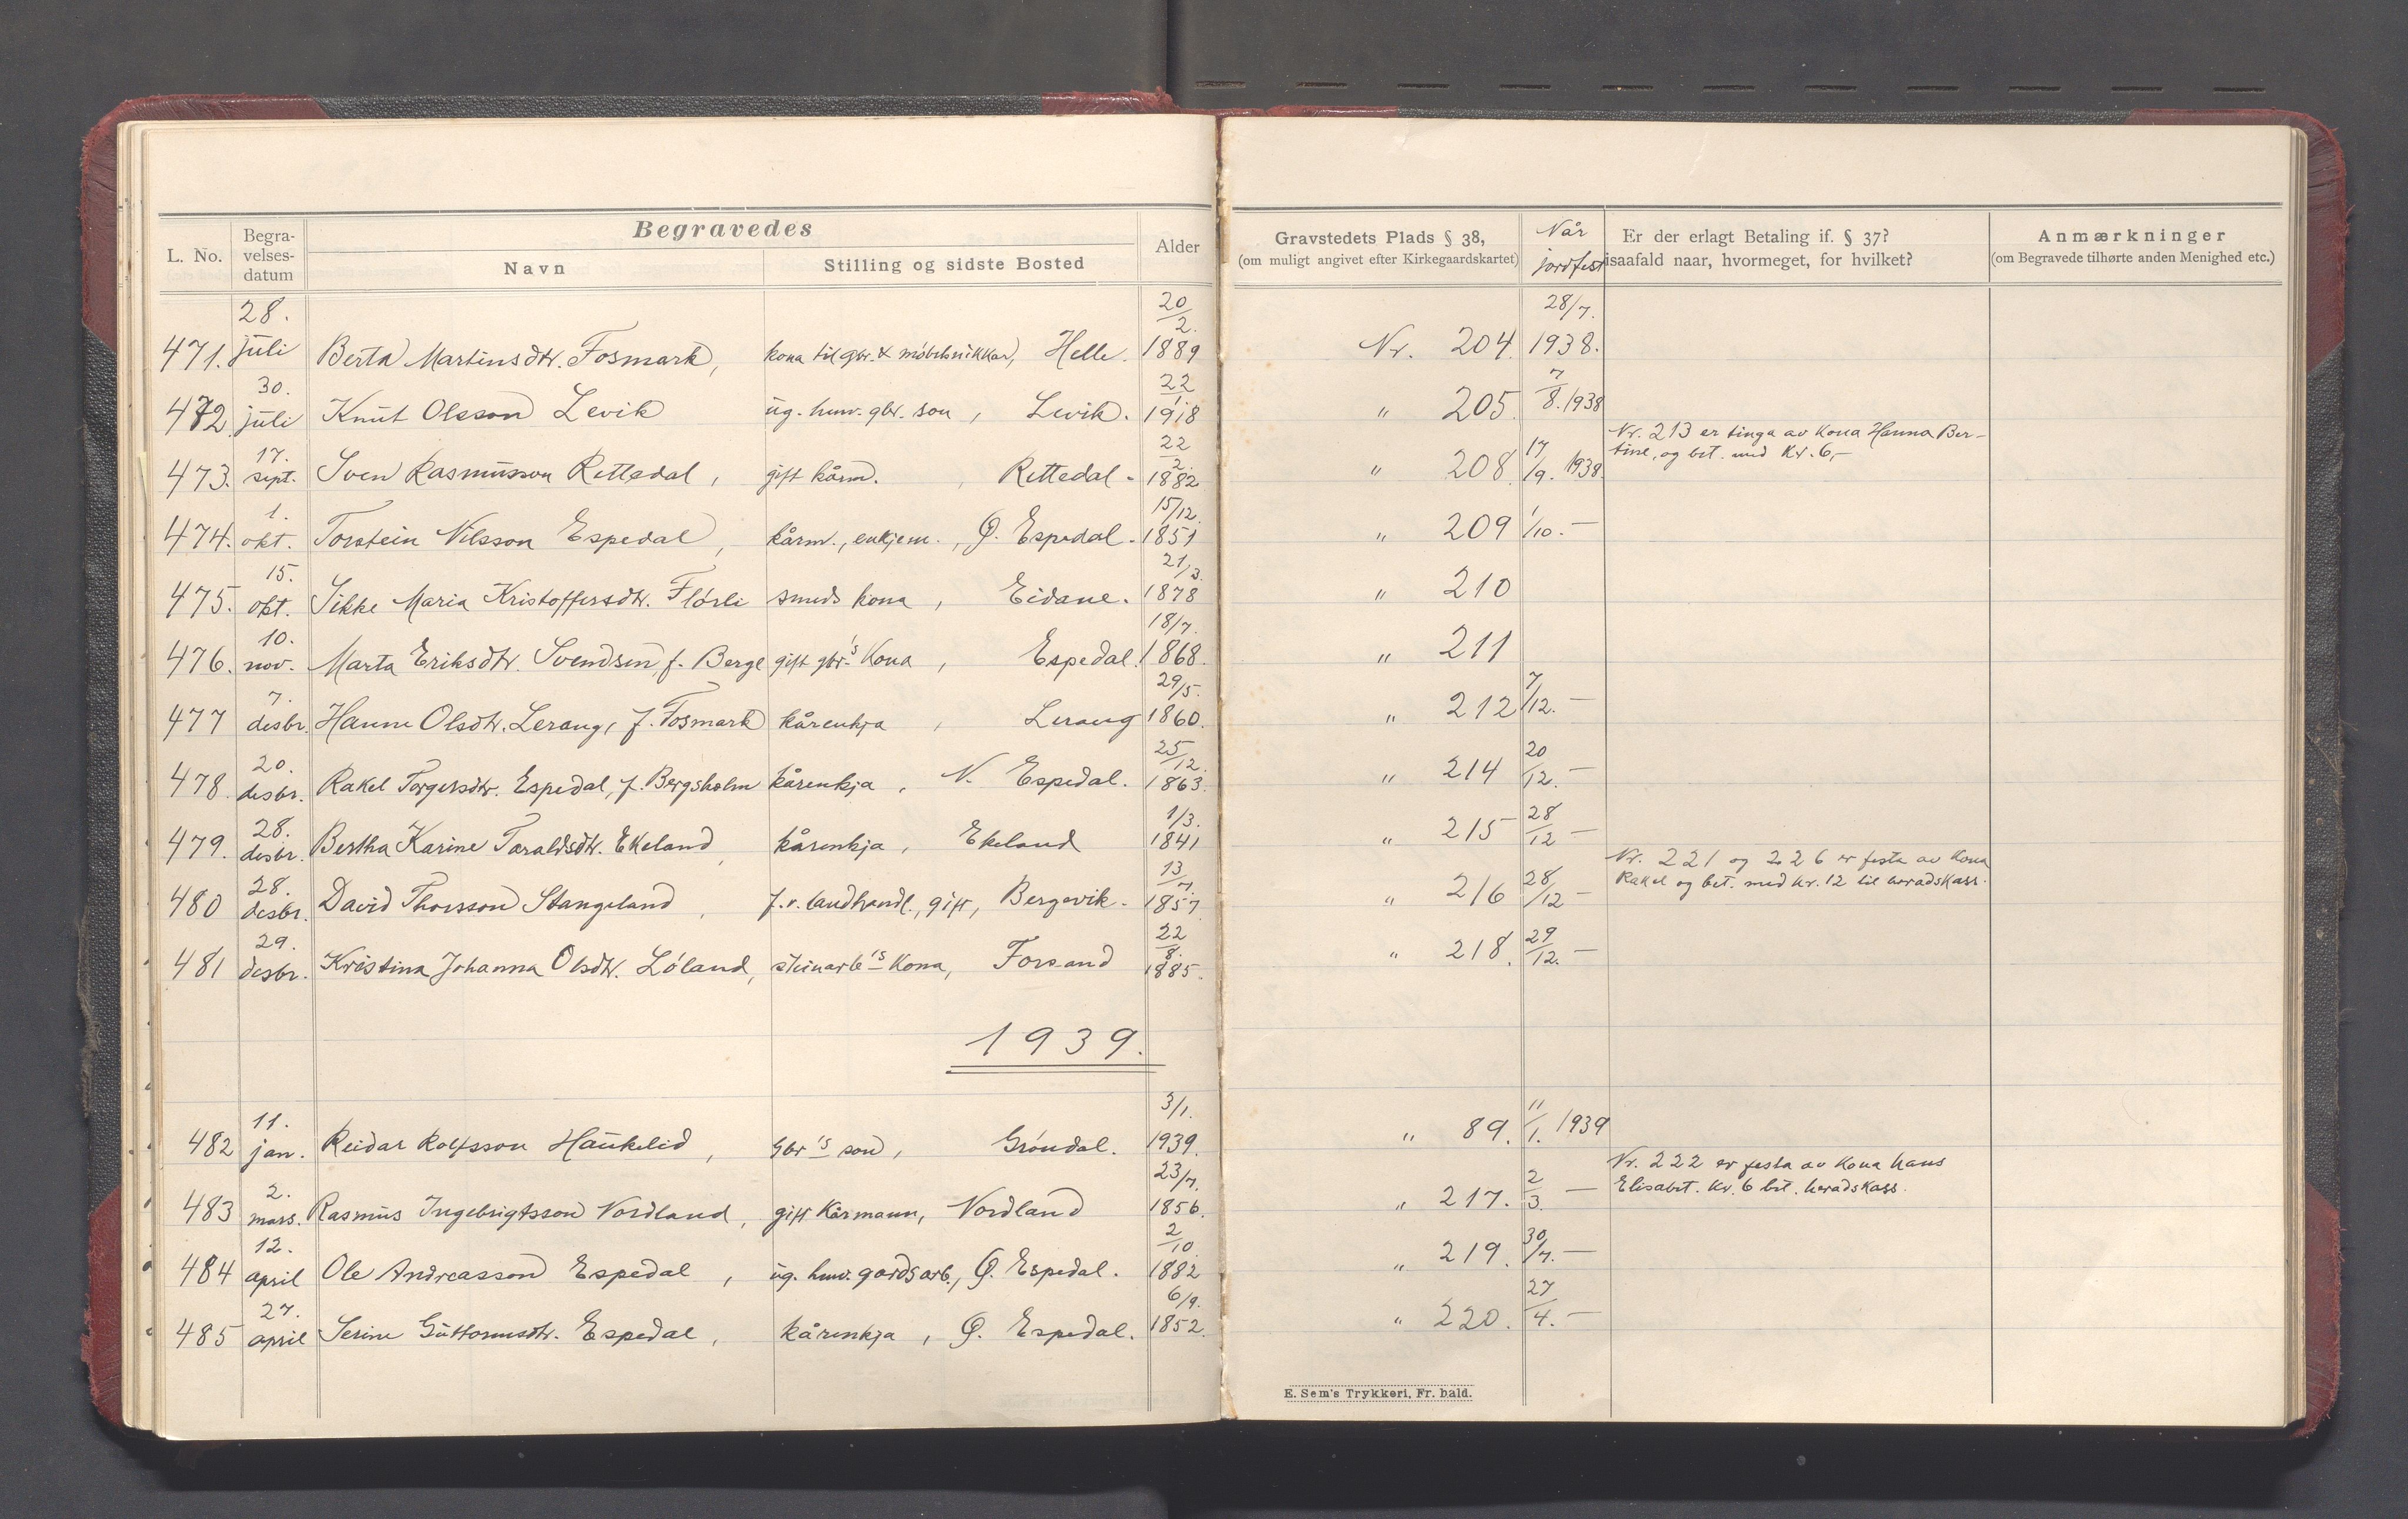 Begravedes
L. No.
Begra-
velses-
datum
Navn
Stilling og sidste Bosted
Alder
Gravstedets Plads § 38,
(om muligt angivet efter Kirkegaardskartet)
Når
jordfest
Er der erlagt Betaling if. § 37?
isaafald naar, hvormeget, for hvilket?
Anmærkninger
(om Begravede tilhørte anden Menighed etc.)
28. 20/2. 28/7.
471. juli Berta Martinsdtr. Fosmark, kona til gbr. & møbelsnikkar, Helle. 1889 Nr. 204. 1938.
30. 22/1. 7/8. 1938
472. juli Knut Olsson Levik ug. hmv. gbr. son, Levik. 1918 " 205.
Nr. 213 er tinga av kona Hanna Ber-
tine, og bet. med Kr. 6,-
17. 22/2. 17/9. 1938.
473. sept. Sven Rasmusson Rettedal, gift kårm. , Rettedal. 1882 " 208
1. 15/12.
474. okt. Torstein Nilsson Espedal, kårm., enkjem., Ø. Espedal. 1851 " 209 1/10. —
15. 21/3.
475. okt. Sikke Maria Kristoffersdtr. Flørli smeds kona, Eidane. 1878 " 210
10. 18/7.
476. nov. Marta Eriksdtr. Svendsen, f. Berge gift gbr's Kona, Espedal. 1868. " 211
7. 29/5.
477 desbr. Hanne Olsdtr. Lerang, f. Fosmark kårenkja , Lerang 1860. " 212 7/12. —
20. 25/12.
478. desbr. Rakel Torgersdtr. Espedal, f. Bergsholm kårenkja , N. Espedal. 1863. " 214 20/12. —
28. 1/3.
479. desbr. Bertha Karine Taraldsdtr. Ekeland, kårenkja, Ekeland 1841 " 215 28/12 —
Nr. 221 og 226 er festa av kona
Rakel og bet. med kr. 12 til heradskass.
28. 13/7.
480 desbr. David Thorsson Stangeland , f. v. landhandl., gift, Bergevik. 1857 " 216 28/12 —
29. 22/8.
481 desbr. Kristina Johanna Olsdtr. Løland, steinarb's Kona, Forsand 1885. " 218. 29/12. —
1939.
11. 3/1.
482 jan. Reidar Rolfsson Haukelid, Gbr's son, Grøndal. 1939. " 89. 11/1. 1939
Nr. 222 er festa av kona hans
Elisabet. Kr. 6 bet. heradskass.
2. 23/7.
483 mars. Rasmus Ingebrigtsson Nordland, gift Kårmann, Nordland 1856. " 217. 2/3. —
12. 2/10.
484 april Ole Andreasson Espedal , ug. hmv. gardsarb., Ø. Espedal. 1882 " 219. 30/7. —
27. 6/9.
485 april Serine Guttormsdtr. Espedal, kårenkja, Ø. Espedal. 1852. " 220. 27/4. —
E. Sem's Trykkeri, Fr.hald.